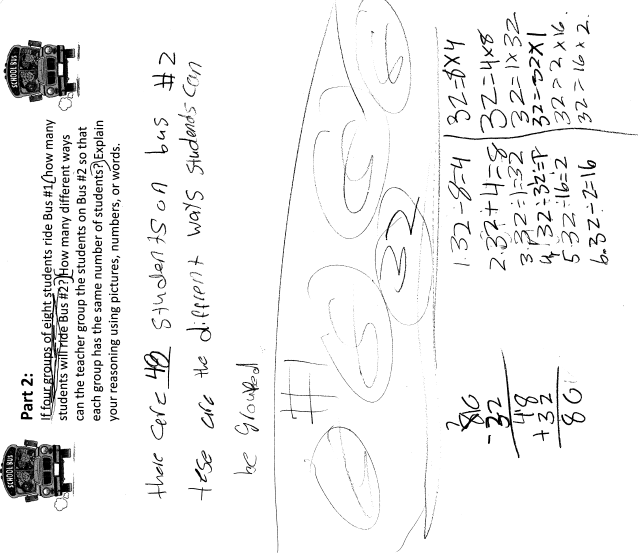 SCHOOL BUS
SCHOOL BUS
Part 2:
If four groups of eight students ride Bus #1, how many
students will ride Bus #2? How many different ways
can the teacher group the students on Bus #2 so that
each group has the same number of students? Explain
your reasoning using pictures, numbers, or words.
there are 48 students on bus #2
these are the different ways students can
be grouped
#1
8 8 8 8
32
80
-32
48
+32
80
1. 32÷8=4
2. 32÷4=8
3. 32÷1=32
4. 32÷32=1
5 32÷16=2
6. 32÷2=16
32=8x4
32=4x8
32=1x32
32=32x1
32=2x16.
32=16x2.